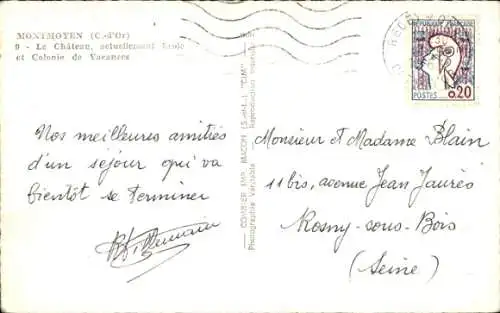 MONTMOYEN (C.-d'Or)
9 - Le Château, actuellement Ecole
et Colonie de Vacances
Nos meilleures amitiés
d'un séjour qui va
bientôt se terminer
COMBIER IMP. MACON (S.-et-L.) "CIM"
Photographie Véritable Reproduction
REPUBLIQUE FRANÇAISE
POSTES 0,20
Monsieur et Madame Blain
11 bis, avenue Jean Jaurès
Rosny-sous-Bois
(Seine)